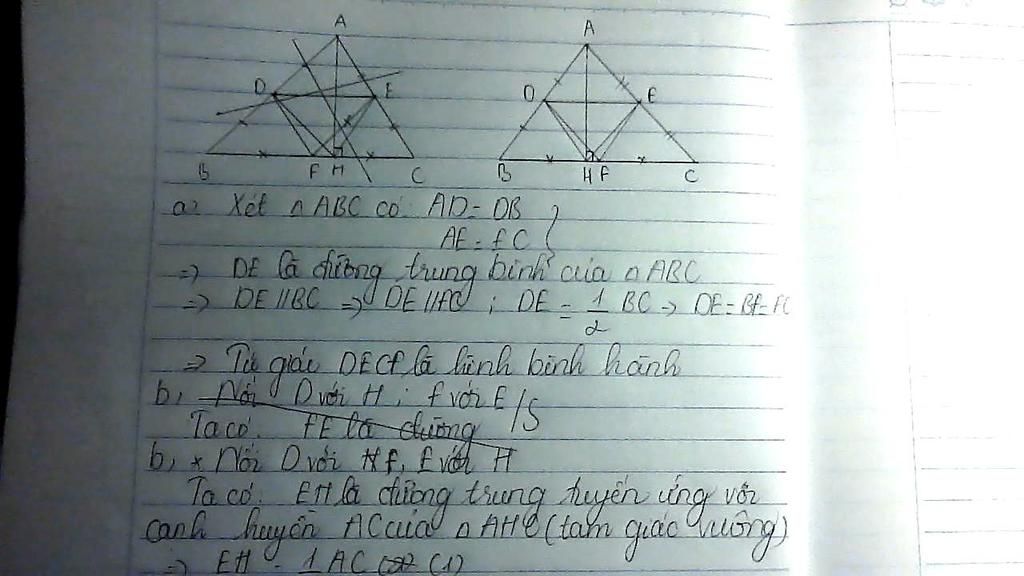 A
A
D
E
D
E
B
F H
C
B
H F
C
a, Xét △ABC có AD = DB
AE = EC
=> DE là đường trung bình của △ABC
=> DE // BC => DE // FC ; DE = 1/2 BC -> DE = BF = FC
=> Tứ giác DECF là hình bình hành
b, Nối D với H ; F với E /S
Ta có FE là đường
b, * Nối D với F, E với H
Ta có EH là đường trung tuyến ứng với
cạnh huyền AC của △AHC (tam giác vuông)
=> EH = 1 AC (1)